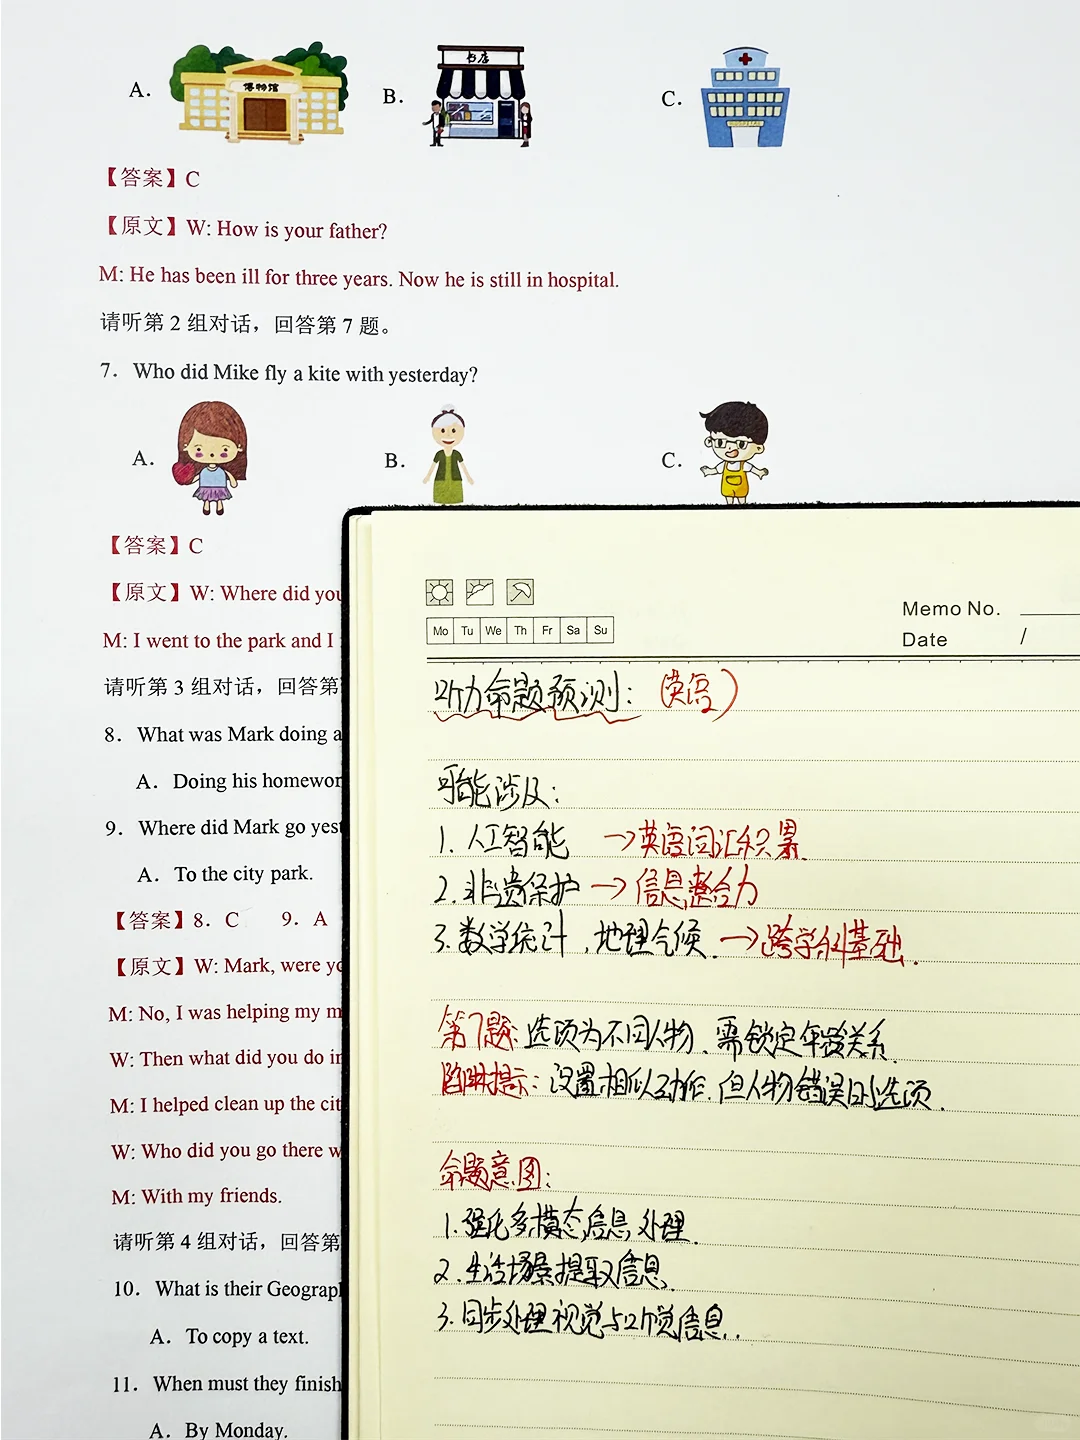 A. 博物馆 B. 书店 C.
【答案】C
【原文】W: How is your father?
M: He has been ill for three years. Now he is still in hospital.
请听第 2 组对话，回答第 7 题。
7. Who did Mike fly a kite with yesterday?
A. B. C.
【答案】C
【原文】W: Where did you
M: I went to the park and I
请听第 3 组对话，回答第
8. What was Mark doing a
A. Doing his homewor
9. Where did Mark go yest
A. To the city park.
【答案】8. C 9. A
【原文】W: Mark, were yo
M: No, I was helping my m
W: Then what did you do in
M: I helped clean up the cit
W: Who did you go there w
M: With my friends.
请听第 4 组对话，回答第
10. What is their Geograp
A. To copy a text.
11. When must they finish
A. By Monday.
Memo No.
Mo Tu We Th Fr Sa Su
Date /
听力命题预测：(英语)
可能涉及：
1. 人工智能 →英语词汇积累.
2. 非遗保护 → 信息整合力
3. 数学统计，地理气候. →跨学科基础.
第7题：选项为不同人物，需锁定年龄关系.
陷阱提示：设置相似动作，但人物错误的选项.
命题意图：
1. 强化多模态信息处理.
2. 生活场景提取信息.
3. 同步处理视觉与听觉信息.